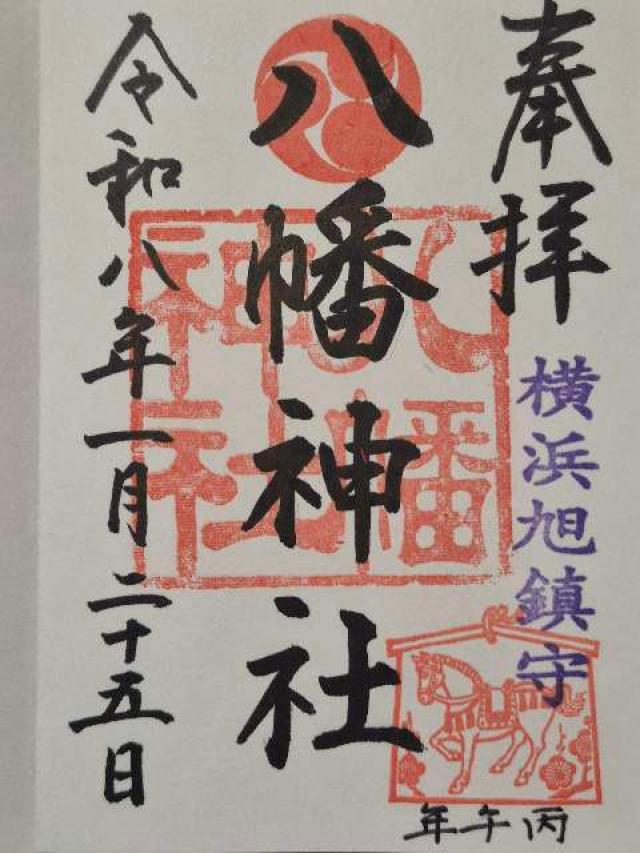 奉拝
横浜旭鎮守
八幡神社
八幡神社
令和八年一月二十五日
丙午年